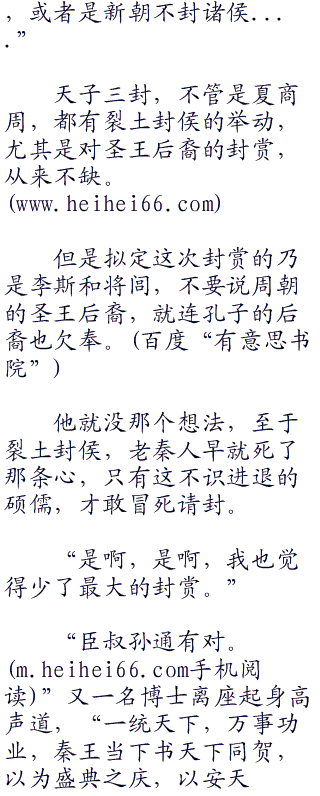 ，或者是新朝不封诸侯...
.”
天子三封，不管是夏商
周，都有裂土封侯的举动，
尤其是对圣王后裔的封赏，
从来不缺。
(www.heihei66.com)
但是拟定这次封赏的乃
是李斯和将闾，不要说周朝
的圣王后裔，就连孔子的后
裔也欠奉。(百度“有意思书
院”)
他就没那个想法，至于
裂土封侯，老秦人早就死了
那条心，只有这不识进退的
硕儒，才敢冒死请封。
“是啊，是啊，我也觉
得少了最大的封赏。”
“臣叔孙通有对。
(m.heihei66.com手机阅
读)”又一名博士离座起身高
声道，“一统天下，万事功
业，秦王当下书天下同贺，
以为盛典之庆，以安天